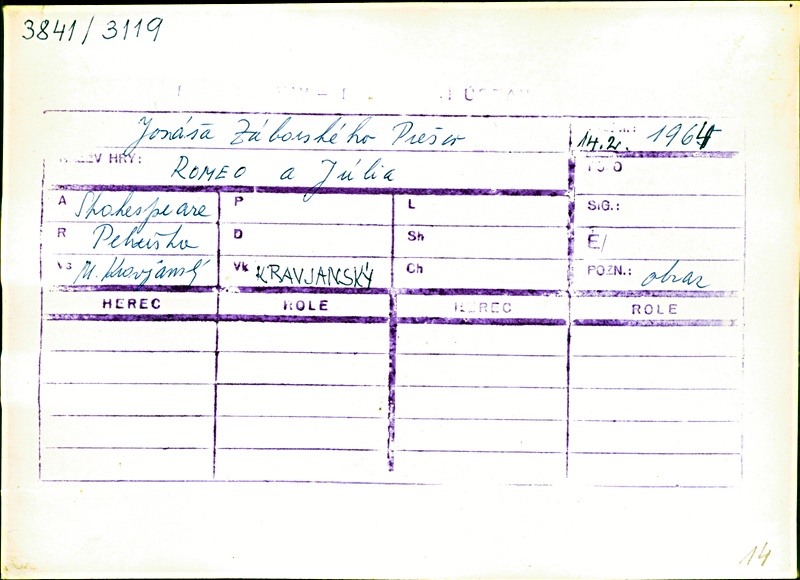 3841/3119
Jonáša Záborského Prešov
14.2. 1964
NÁZEV HRY: ROMEO a Júlia
A Shakespeare P L SIG.:
R Petruška D Sh Č/
M. Kravjanský Vk KRAVJANSKÝ Ch POZN.: obraz
HEREC ROLE HEREC ROLE
14